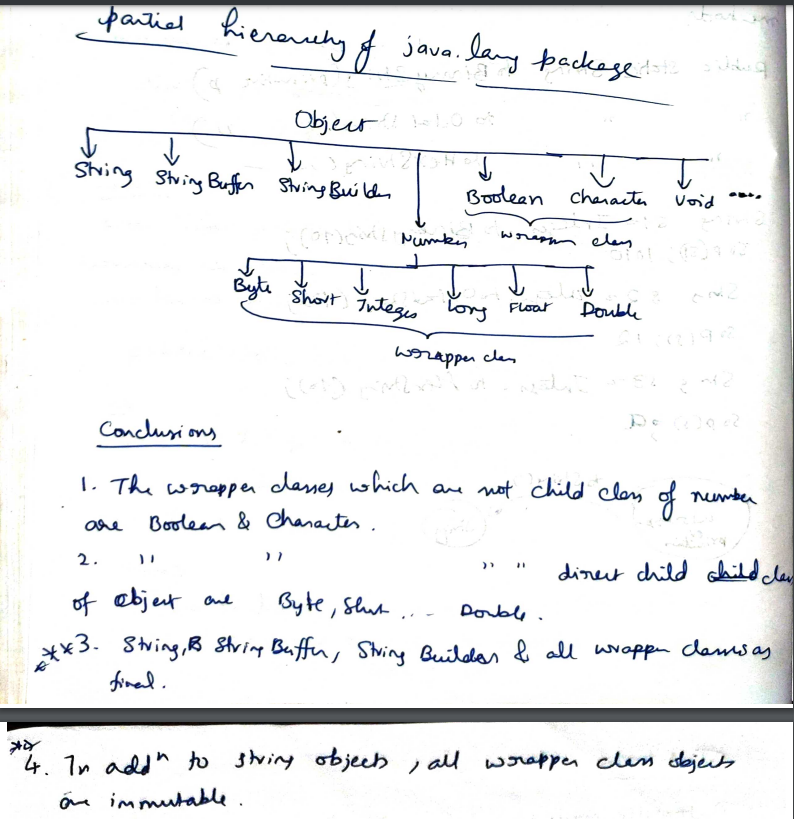 partial hierarchy of java.lang package
Object
String StringBuffer StringBuilder Boolean Character Void ....
Number wrapper class
Byte Short Integer Long Float Double
wrapper class
Conclusions
1. The wrapper classes which are not child class of number
are Boolean & Character.
2. " " " " direct child child class
of object are Byte, Short ... Double.
**3. String, B String Buffer, String Builder & all wrapper classes as
final.
4. In addn to string objects, all wrapper class objects
are immutable.